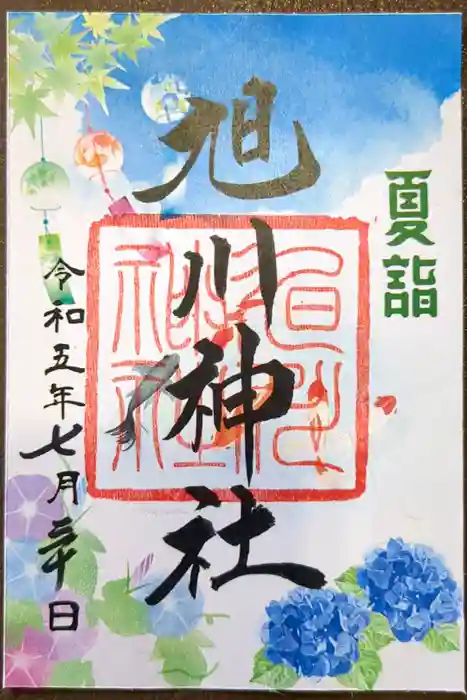 夏詣
旭川神社
旭川
神社
令和五年七月三十日